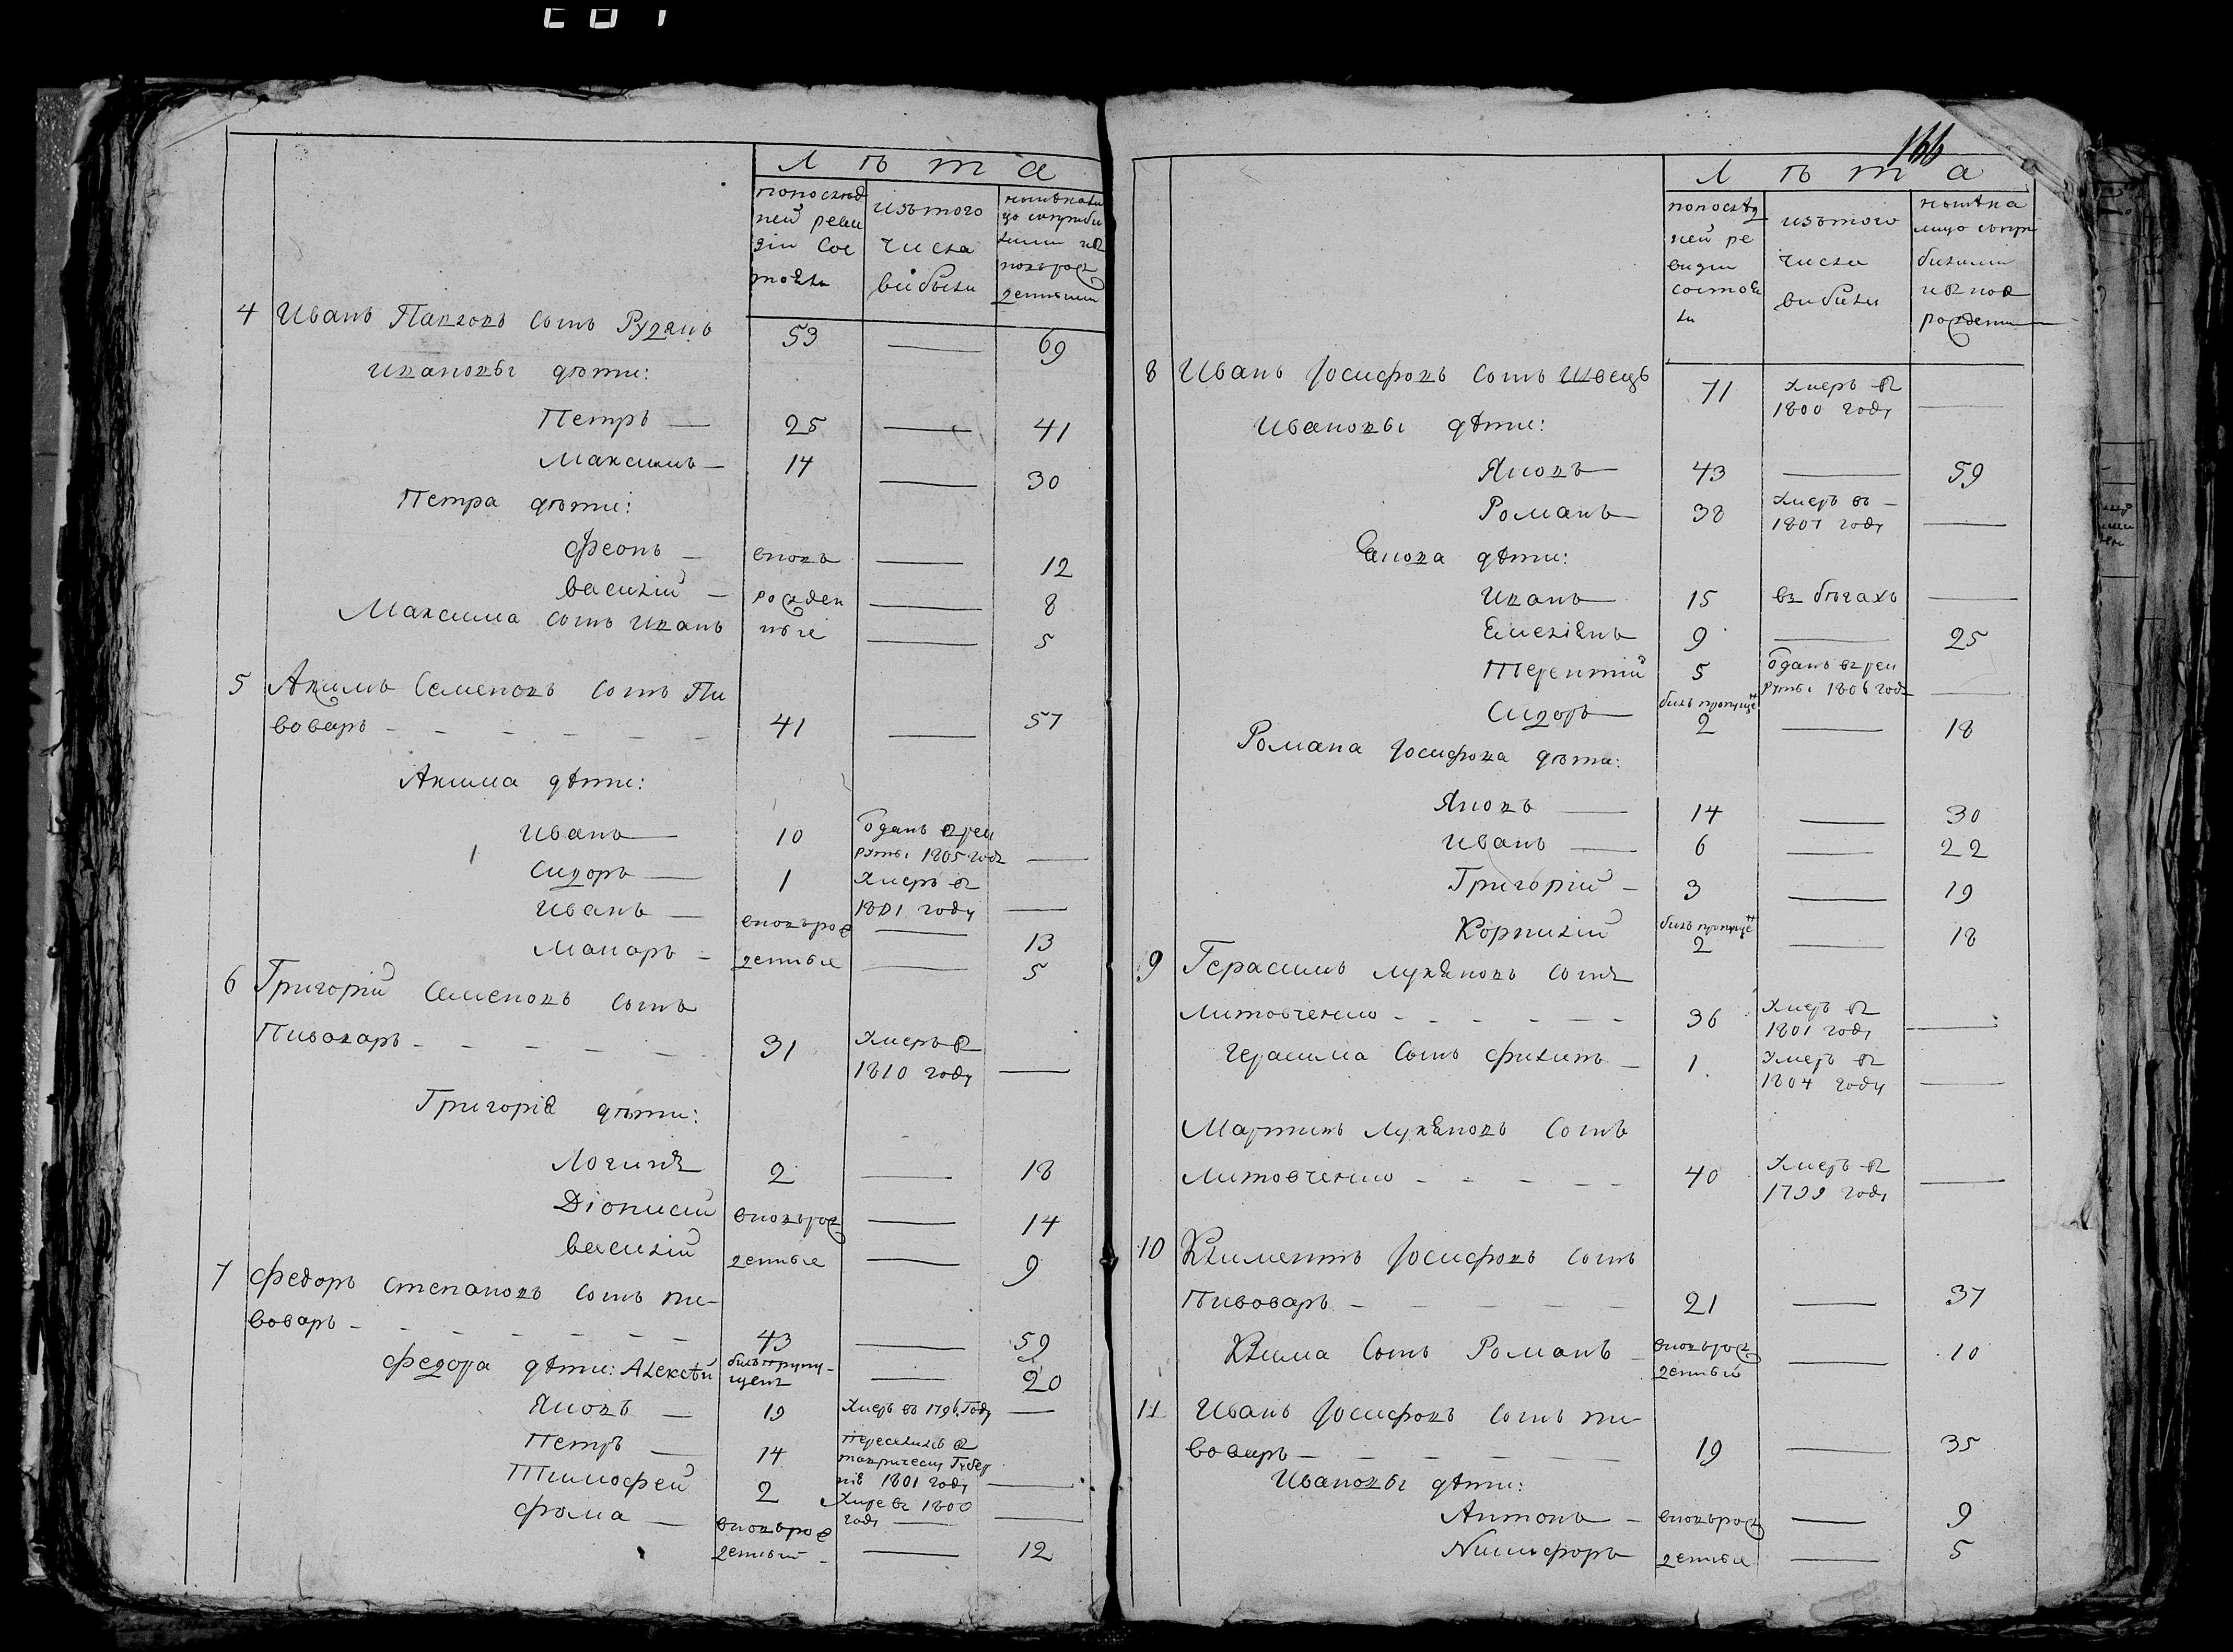 Лѣта
попослѣд
ней реви
зіи Сос
тояли
изътого
числа
выбыли
нынѣнали
цо
новърож
денными
4 Иванъ Павловъ сынъ Рудянъ 53 — 69
Ивановы дѣти:
Петръ — 25 — 41
Максимъ — 14 — 30
Петра дѣти:
Феонъ — вновь — 12
Василій — рожден — 8
Максима сынъ Иванъ ные — 5
5 Акимъ Семеновъ сынъ Пи
воваръ - - - - - - 41 — 57
Акима дѣти:
Иванъ — 10 Отданъ врек
руты 1805 году —
Сидоръ — 1 Умеръ в
1801 году —
Иванъ — вновьрож — 13
Макаръ — денные — 5
6 Григорій Семеновъ сынъ
Пивоваръ - - - - - 31 Умеръ в
1810 году —
Григорія дѣти:
Логинъ 2 — 18
Діонисій вновьрож — 14
Василій денные — 9
7 Федоръ Степановъ сынъ пи-
воваръ - - - - - - - 43 — 59
Федора дѣти: Алексѣй былъ пропу-
щенъ — 20
Яковъ — 19 Умеръ въ 1796 году —
Петръ — 14 переселилъ в
таврическу Губер
нію 1801 году —
Тимофей 2 Умре въ 1800
году —
Фома — вновьрож
денный — 12
166
Лѣта
попослѣд
ней ре
визіи
состоя
ли
изътого
числа
выбыли
нынѣна
лицо
новъ
рожден
8 Иванъ Іосифовъ сынъ Швецъ 71 Умеръ в
1800 году —
Ивановы дѣти:
Яковъ — 43 — 59
Романъ — 38 Умеръ въ —
1807 году —
Якова дѣти:
Иванъ — 15 въ бѣгахъ —
Емеліянъ 9 — 25
Терентій 5 Отданъ врек
руты 1806 году —
Сидоръ — былъ пропущен
2 — 18
Романа Іосифова дѣти:
Яковъ — 14 — 30
Иванъ — 6 — 22
Григорій — 3 — 19
Корнилій былъ пропущен
2 — 18
9 Герасимъ Лукяновъ сынъ
Литовченко - - - - - - 36 Умеръ в
1801 году —
Герасима сынъ Филипъ — 1 Умеръ в
1804 году —
Мартинъ Лукяновъ сынъ
Литовченко - - - - - 40 Умеръ в
1799 году —
10 Климентъ Іосифовъ сынъ
Пивоваръ - - - - - - 21 — 37
Клима сынъ Романъ — вновьрож
денный — 10
11 Иванъ Іосифовъ сынъ пи-
воваръ - - - - - - 19 — 35
Ивановы дѣти:
Антонъ — вновьрож — 9
Никифоръ денные — 5